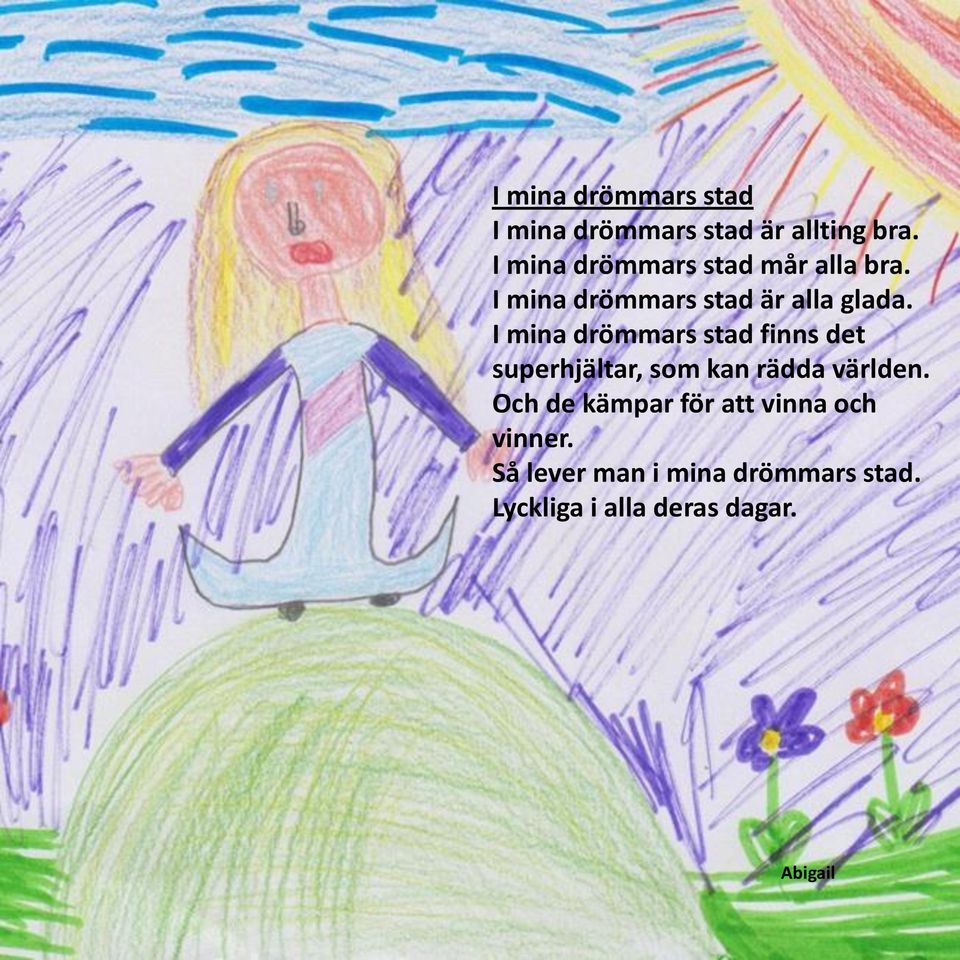 I mina drömmars stad
I mina drömmars stad är allting bra.
I mina drömmars stad mår alla bra.
I mina drömmars stad är alla glada.
I mina drömmars stad finns det
superhjältar, som kan rädda världen.
Och de kämpar för att vinna och
vinner.
Så lever man i mina drömmars stad.
Lyckliga i alla deras dagar.
Abigail